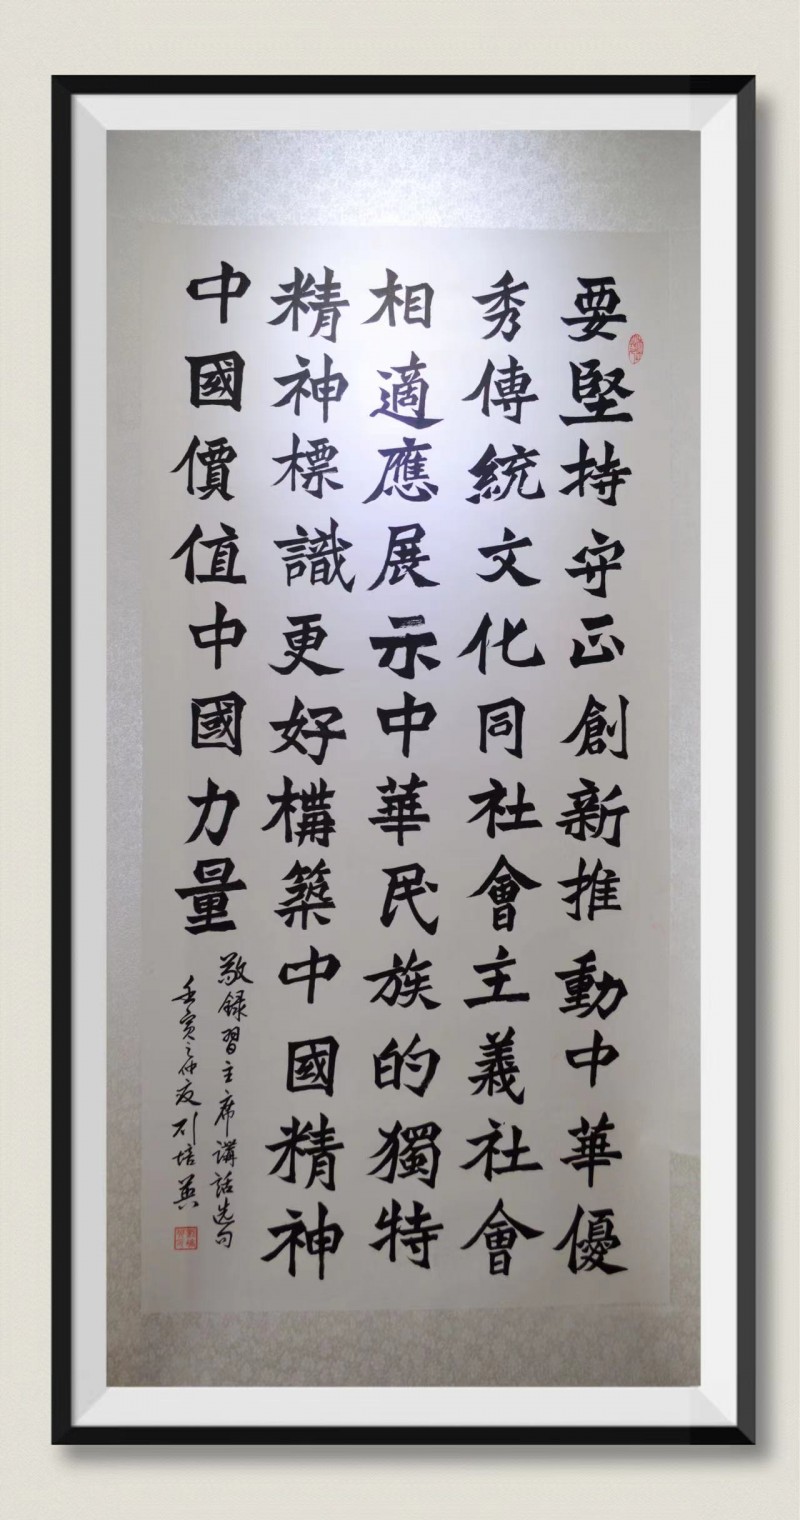 要堅持守正創新推動中華優
秀傳統文化同社會主義社會
相適應展示中華民族的獨特
精神標識更好構築中國精神
中國價值中國力量
敬録習主席講話選句
壬寅之仲夏刘培英